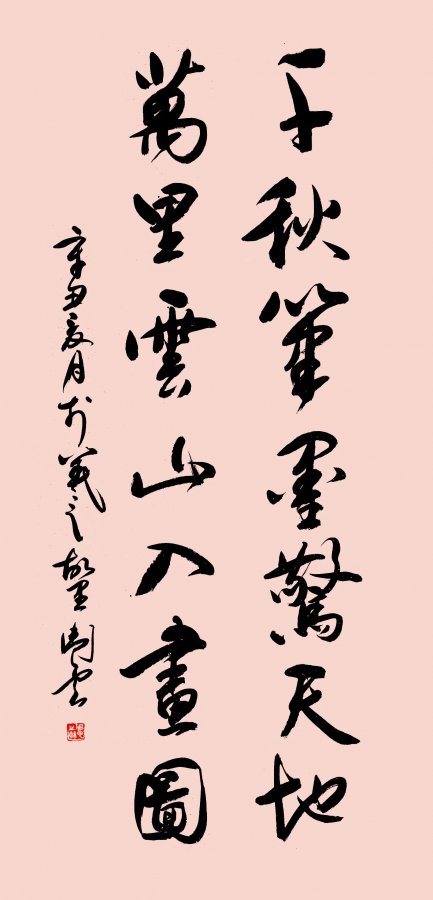 千秋筆墨驚天地
萬里雲山入畫圖
辛丑夏月於羲之故里